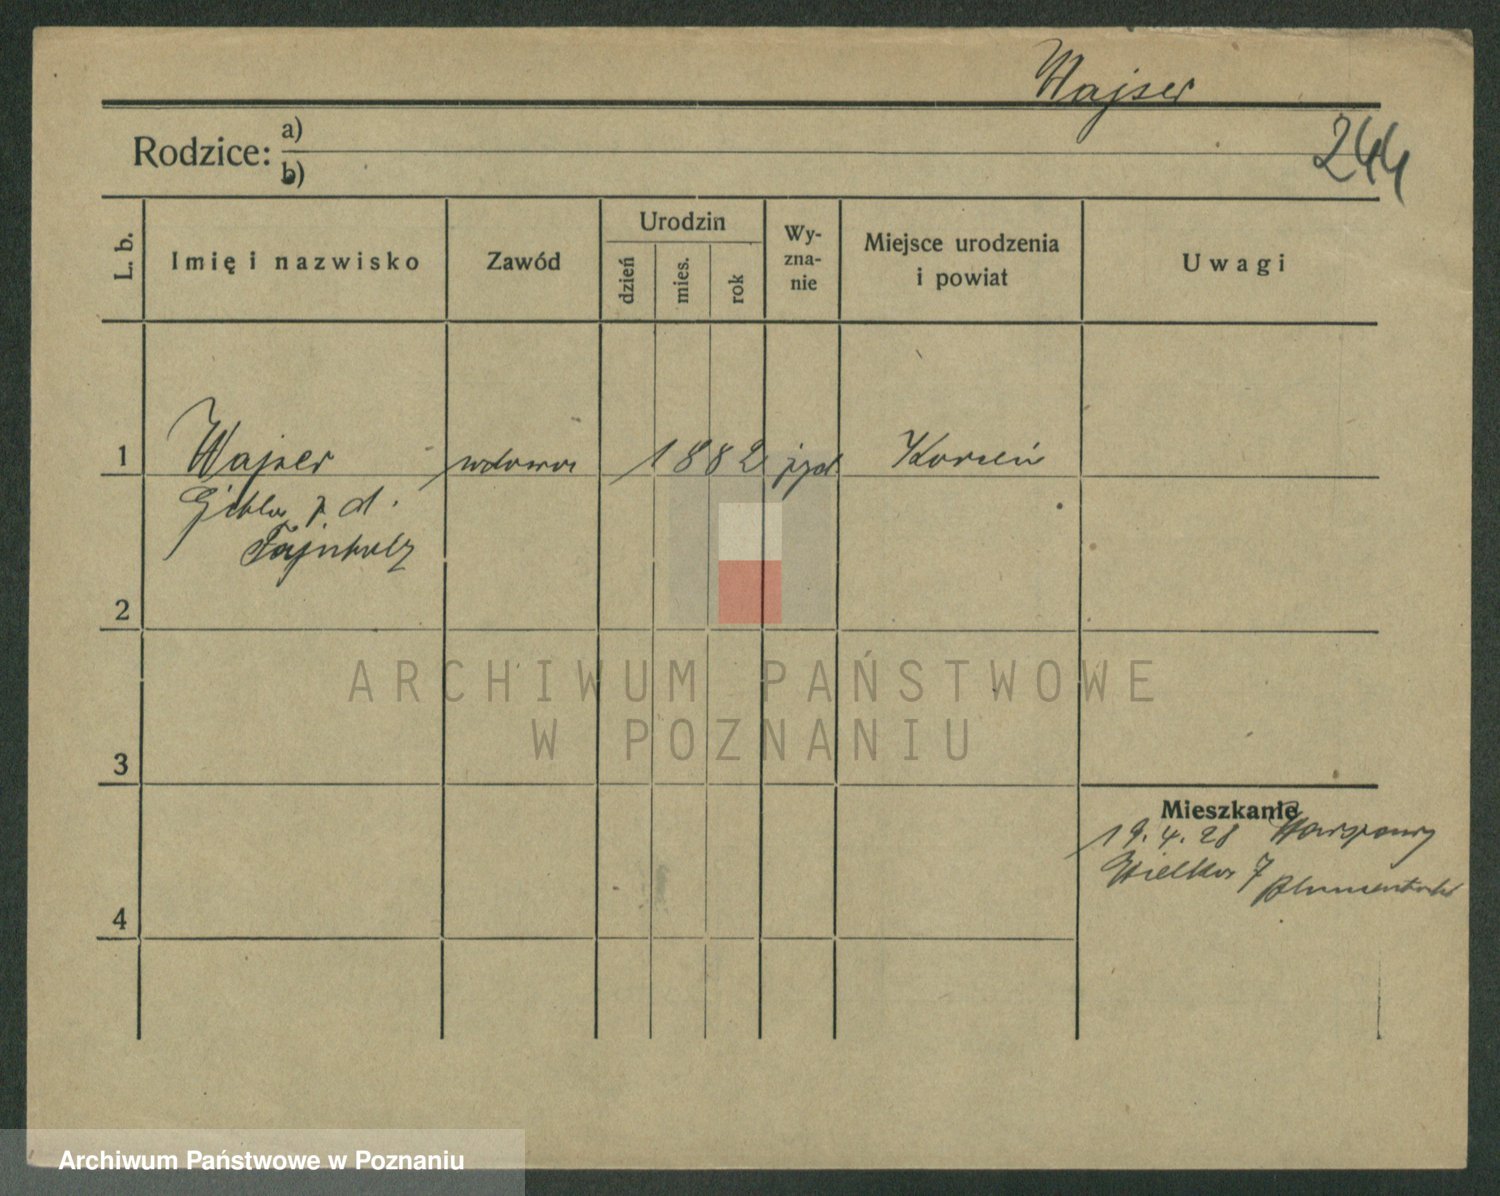 Wajser
244
Rodzice: a)
b)
L. b.
Imię i nazwisko
Zawód
Urodzin
dzień
mies.
rok
Wy-
zna-
nie
Miejsce urodzenia
i powiat
Uwagi
1 Wajser wdowa 1882 żyd
z d.
2
3
4
Mieszkanie
19.4.28
Wielka 7
ARCHIWUM PAŃSTWOWE
W POZNANIU
Archiwum Państwowe w Poznaniu